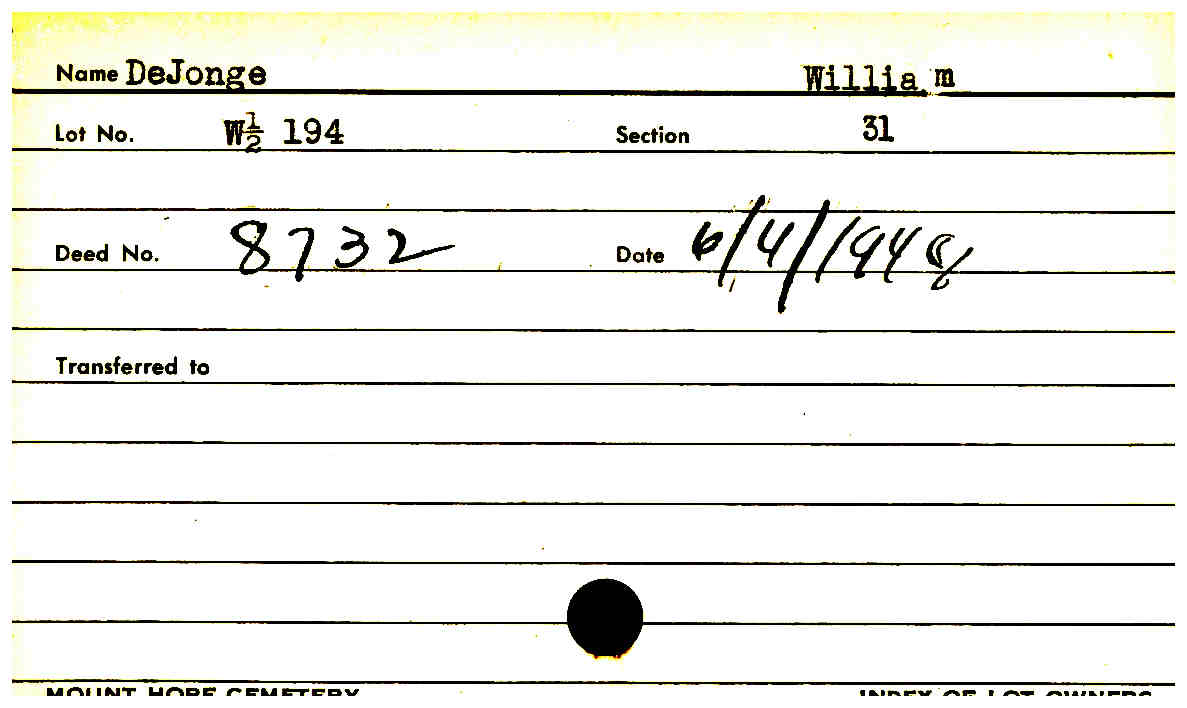 Name DeJonge William
Lot No. W½ 194 Section 31
Deed No. 8732 Date 6/4/1948
Transferred to
MOUNT HOPE CEMETERY INDEX OF LOT OWNERS